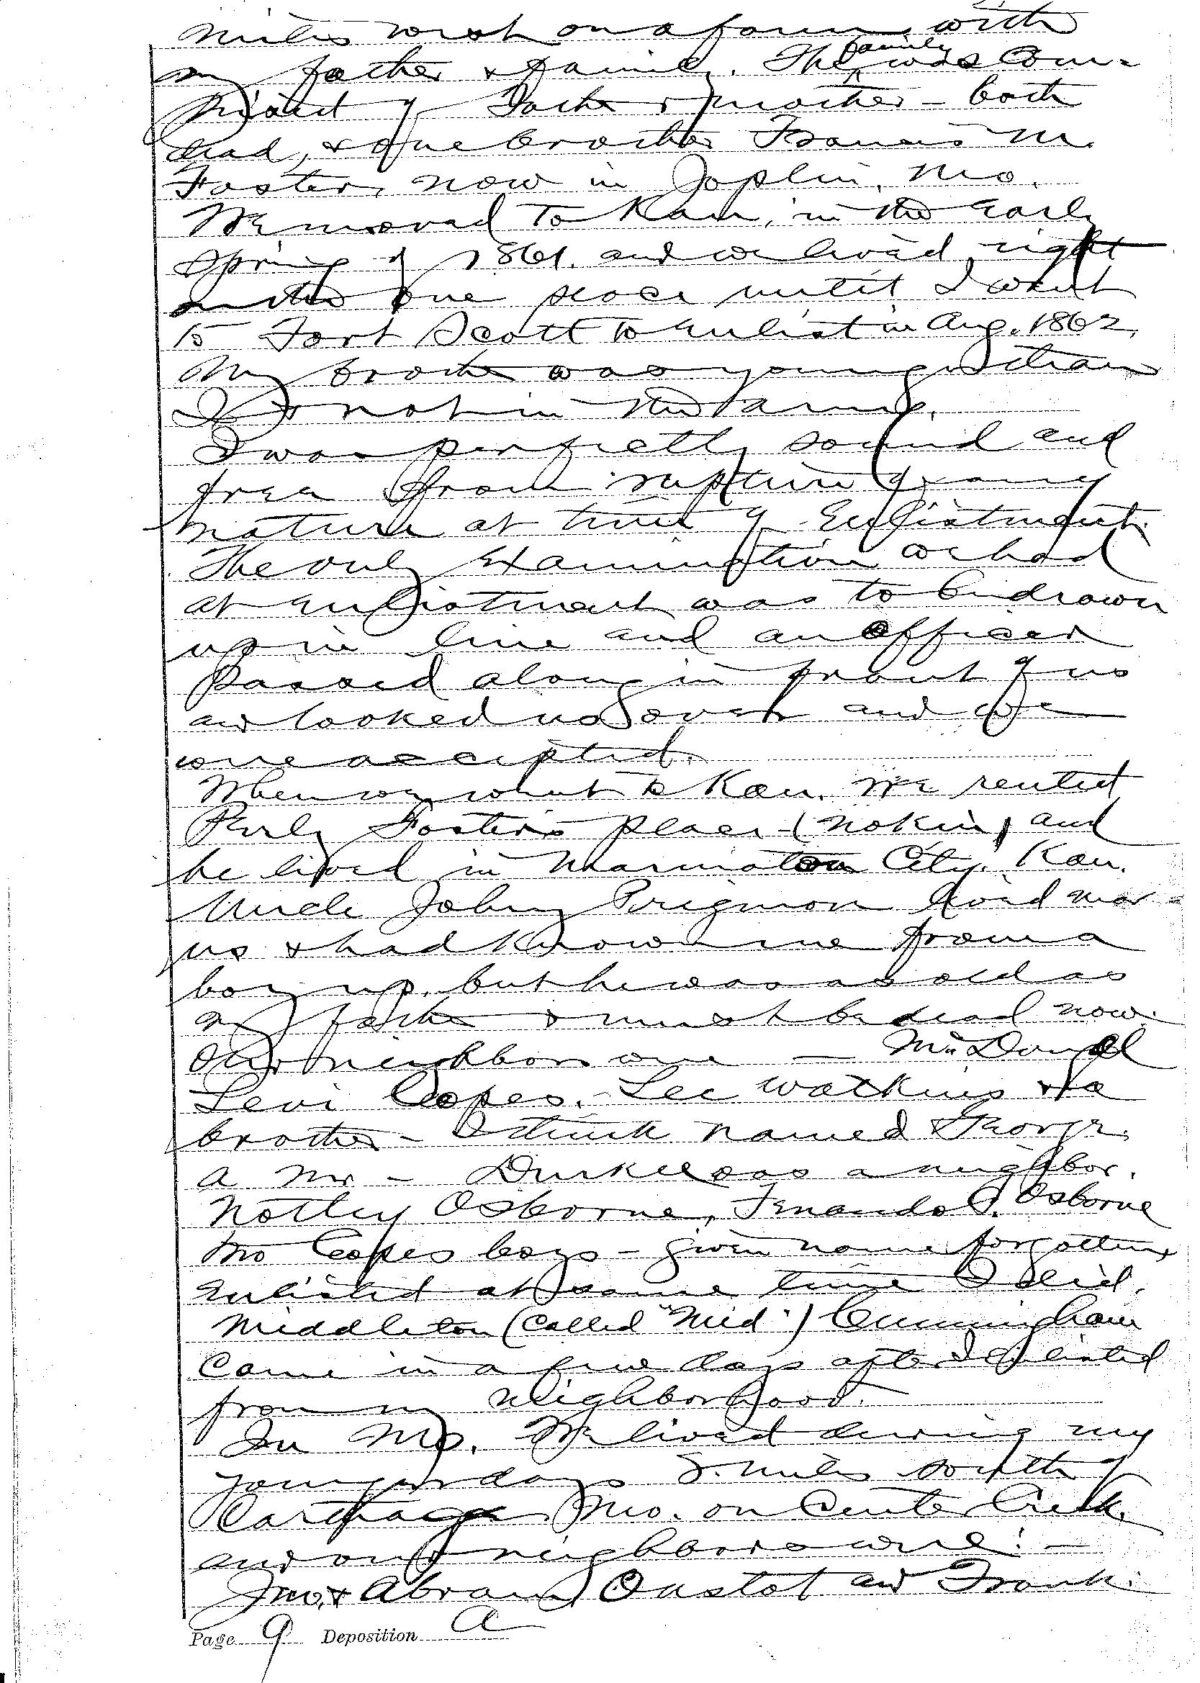 miles west on a farm with
my father & family. The family was com-
prised of Father & mother - both
dead, & one brother Francis M.
Foster, now in Joplin, Mo.
We moved to Kan, in the Early
Spring of 1861. and we lived right
on the one place until I went
to Fort Scott to Enlist in Aug. 1862.
My brother was younger than
I & not in the army.
I was perfectly sound and
free from rupture of any
nature at time of Enlistment.
The only Examination we had
at Enlistment was to be drawn
up in line and an officer
passed along in front of us
and looked us over and we
were accepted.
When we went to Kan. We rented
Perly Foster's place - (no kin) and
he lived in Marmaton City, Kan.
Uncle John Prigmore lived near
us & had known me from a
boy up. but he was as old as
my father & must be dead now.
Our neighbors were — McDougal
Levi Copes. Lee Watkins & a
brother - I think named George.
a Mr - Durkee was a neighbor.
Notley Osborne, Fernando S. Osborne
Two Copes boys - given name forgotten,
Enlisted at same time I did.
Middleton (called "Mid") Cunningham
came in a few days after I Enlisted
from my neighborhood.
In Mo. We lived during my
younger days 2. miles south of
Carthage Mo. on Center Creek.
and our neighbors were: —
Jno. & Abram Onstot and Frank
Page 9 Deposition A